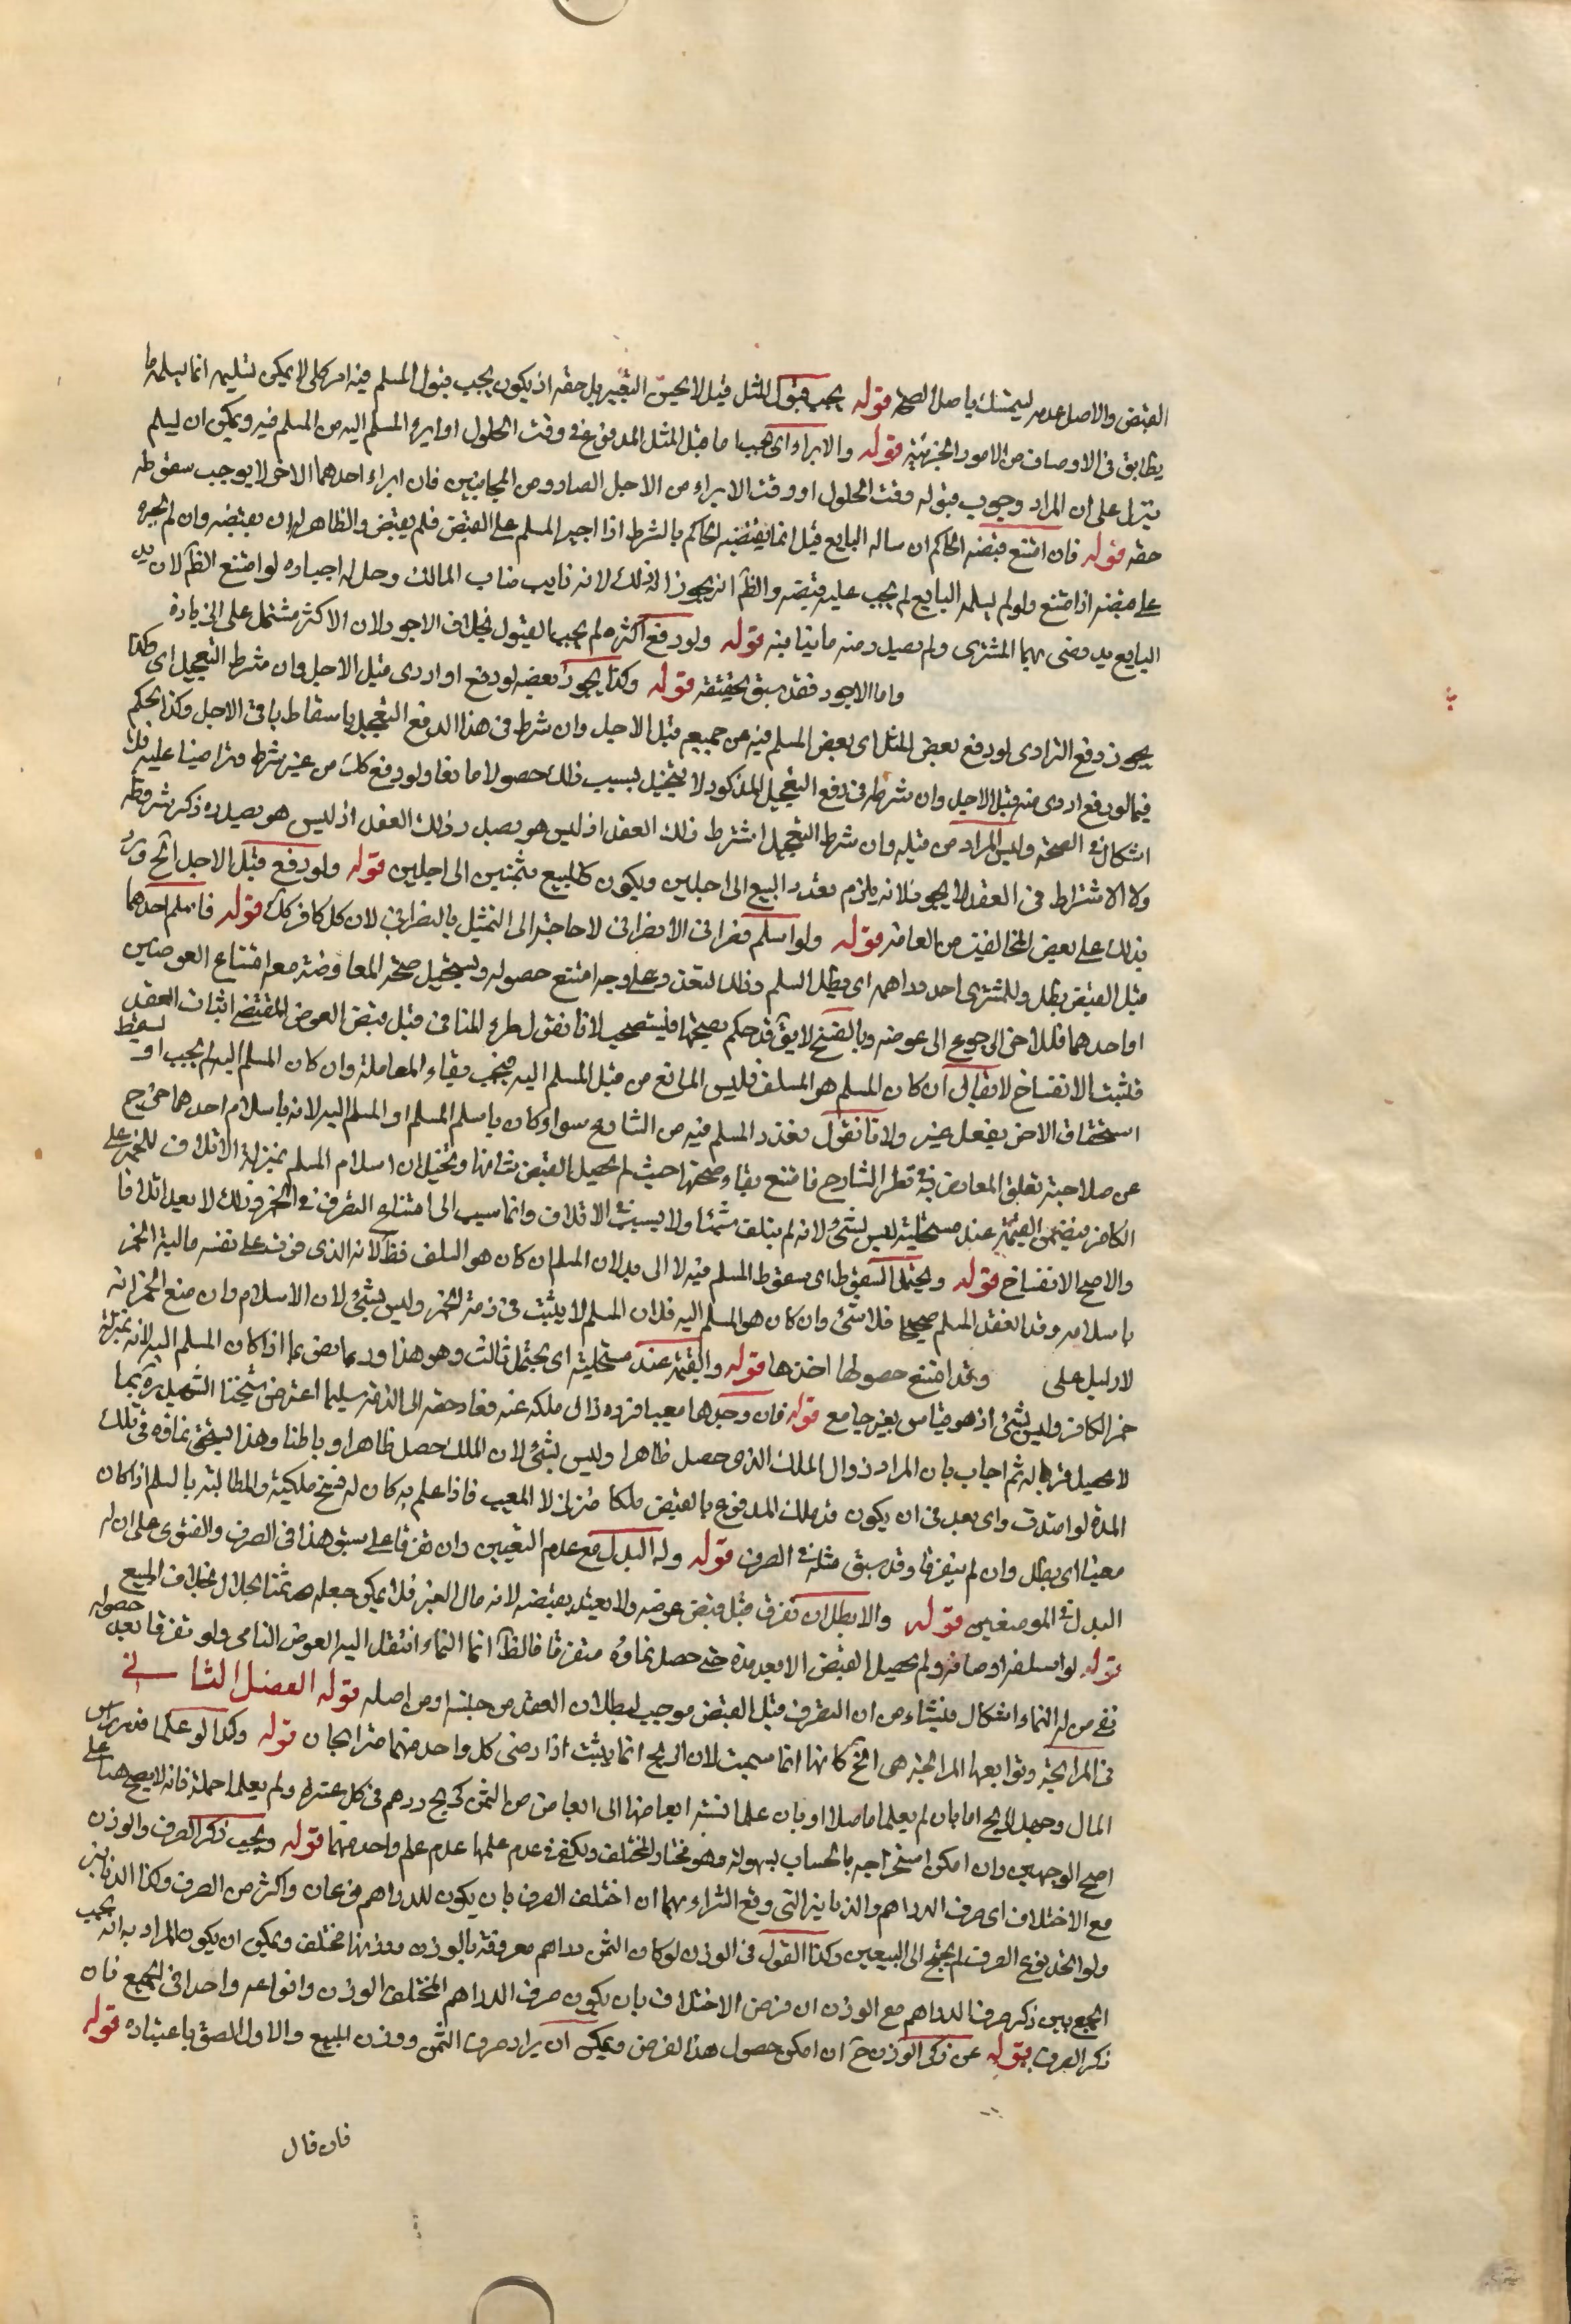 القبض والاصل عدمه ليتمسك باصل الصحة قوله يجب قبول المثل قيل لا يحسن التعبير بل حقه ان يكون يجب قبول المسلم فيه امر كلى لا يمكن تسليمه انما يسلمه ما
يطابق فى الاوصاف من الامور الجزئية قوله والابراء اى يجب اما قبل المثل المدفوع فى وقت الحلول او ابرء المسلم اليه من المسلم فيه ويمكن ان ليسلم
ينزل على ان المراد وجوب قبوله وقت الحلول او وقت الابراء من الاجل الصادر من الجانبين فان ابراء احدهما الاخر لا يوجب سقوطه
حقه قوله فان امتنع قبضه الحاكم ان ساله البايع قيل انما يقبضه الحاكم بالشرط اذا اجبر المسلم على القبض فلم يقبض والظاهر ان يقبضه وان لم يجبره
على قبضه اذا امتنع ولو لم يسلمه البايع لم يجب عليه قبضه والظ انه يجوز له ذلك لانه نايب مناب المالك وحل له اجباره لو امتنع الظ لان يد
البايع يد رضى بها المشترى ولم يصدر منه ما ينافيه قوله ولو دفع اكثره لم يجب القبول بخلاف الاجود لان الاكثر مشتمل على الزيادة
واما الاجود فقد سبق تحقيقه قوله وكذا يجوز بعضه لو دفع او اردى قبل الاجل وان شرط التعجيل اى وكذا
يجوز دفع الاردى لو دفع بعض المثل اى بعض المسلم فيه عن جميعه قبل الاجل وان شرط فى هذا الدفع التعجيل باسقاط باقى الاجل وكذا الحكم
فيما لو دفع اردى منه قبل الاجل وان شرطه فى دفع التعجيل المذكور لا يتخيل بسبب ذلك حصولا مانعا ولو دفع كلك من غير شرط وتراضيا عليه فلا
اشكال فى الصحة وليس المراد من قبله وان شرط التعجيل اشترط ذلك العقد اذ ليس هو بصدد ذلك العقد اذ ليس هو بصدده ذكر شروطه
ولان الاشتراط فى العقد لا يجوز فلانه يلزم تعدد البيع الى اجلين ويكون كالمبيع بثمنين الى اجلين قوله ولو دفع قبل الاجل الخ ورد
بذلك على بعض المخالفين من العامة قوله ولو اسلم نصرانى الى نصرانى لا حاجة الى التمثيل بالنصرانى لان كل كافر كك قوله فاسلم احدهما
قبل القبض بطل وللمشترى احد دراهمه اى يبطل السلم وذلك لتعذر وعلى وجه امتنع حصوله ويستحيل صحة المعاوضة مع امتناع العوضين
او احدهما فللاخر الرجوع الى عوضه وبالفسخ لا يق قد حكم بصحتها فليستصحب لانا نقول لطرء المنافى قبل قبض العوض المقتضى اثبات العقد
فلتثبت الانفساخ لا يقال ان كان المسلم هو المسلف فليس المانع من قبل المسلم اليه فيجب بقاء المعاملة وان كان المسلم اليه لم يجب او ليسقط
استحقاق الاخر بفعل غيره ولانا نقول تعذر المسلم فيه من الشارع سواء كان باسلم المسلم او المسلم اليه لانه باسلام احدهما خرج
عن صلاحية تعلق المعاوضة فى نظر الشارع فامتنع بقاء صحتها حيث لم يحصل القبض بتمامها ويحتمل ان اسلام المسلم بمنزلة الاتلاف للخمر على
الكافر فيضمن القيمة عند مستحليه ليس بشئ لانه لم يتلف شيئا ولا يسبب الاتلاف وانما سبب الى امتناع التصرف فى الخمر وذلك لا يعد اتلافا
والاصح الانفساخ قوله ويحتمل السقوط اى سقوط المسلم فيه لا الى بدل لان المسلم ان كان هو السلف فظ لانه الذى فوت على نفسه مالية الخمر
باسلامه وقد انعقد المسلم صحيحا فلا شئ وان كان هو المسلم اليه فلان المسلم لا يثبت فى ذمته الخمر وليس بشئ لان الاسلام وان منع الخمر انه
لا دليل على وقد امتنع حصولها اخذها قوله والقيمة عند مستحليه اى يحتمل ثالث وهو هذا وربما يفرض عما اذا كان المسلم اليه لانه بمنزلة
خمر الكافر وليس بشئ اذ هو قياس بغير جامع قوله فان وجدها معيبا فرده زال ملكه عنه فعاد حقه الى الذمة سليما اعترض شيخنا الشهيد ره بما
لا محصل فربما له ثم اجاب بان المراد زوال الملك الذى حصل ظاهرا وليس بشئ لان الملك حصل ظاهرا وباطنا وهذا ليستحق نماؤه فى تلك
المدة لو امتدت واى بعد فى ان يكون قد ملك المدفوع بالقبض ملكا متزلزلا المعيب فاذا علم به كان له فسخ ملكيته والمطالبة بالسلم اذا كان
معينا اى بطل وان لم يتفرقا وقد سبق مثله فى الصرف قوله وله البدل مع عدم التعيين وان تفرقا على سبق هذا فى الصرف والفتوى على ان له
البدل فى الموضعين قوله والا بطل ان تفرق قبل قبض عوضه ولا يعتد بقبضه لانه مال الغير فلا يمكن جعله ثمنا بحال بخلاف المبيع
قوله لو اسلفه اوصافه ولم يحصل القبض الا بعد مدة حتى حصل نماؤه متفرقا فالظ انما النماء انتقل اليه العوض النامى ولو تفرقا بعد حصوله
ففى من له النماء اشكال فينشاء من ان التفرق قبل القبض موجب لبطلان العقد من حينه او من اصله قوله الفصل الثانى
فى المرابحة وتوابعها المرابحة هى الخ كانها انما سميت لان الربح انما يثبت اذا رضى كل واحد منهما مترابحان قوله وكذا لو علما قدر راس
المال وجهلا الربح اما بان لم يعلماه اصلا او بان علما نسبة ابعاضها الى ابعاض من الثمن كربح درهم فى كل عشرة ولم يعلما جملته فانه لا يصح هنا على
اصح الوجهين وان امكن استخراجه بالحساب بسهولة وهو مختار المختلف ويكفى فى عدم علمها عدم علم واحد منهما قوله ويجب ذكر الصرف والوزن
مع الاختلاف اى صرف الدراهم والدنانير التى وقع الشراء بهما ان اختلف الصرف بان يكون للدراهم نوعان واكثر من الصرف وكذا الدنانير
ولو اتحد نوع الصرف لم يحتج الى التعيين وكذا القول فى الوزن لو كان الثمن دراهم معروفة بالوزن ووزنها مختلف ويمكن ان يكون المراد به انه يجب
الجمع بين ذكر صرف الدراهم مع الوزن ان فرض الاختلاف بان يكون صرف الدراهم المختلف الوزن وانواعه واحدا فى الجميع فان
ذكر الصرف بقوله عن ذكر الوزن ح ان امكن حصول هذا الفرض ويمكن ان يراد صرف الثمن ووزن المبيع والاول الصق باعتباره قوله
فان قال